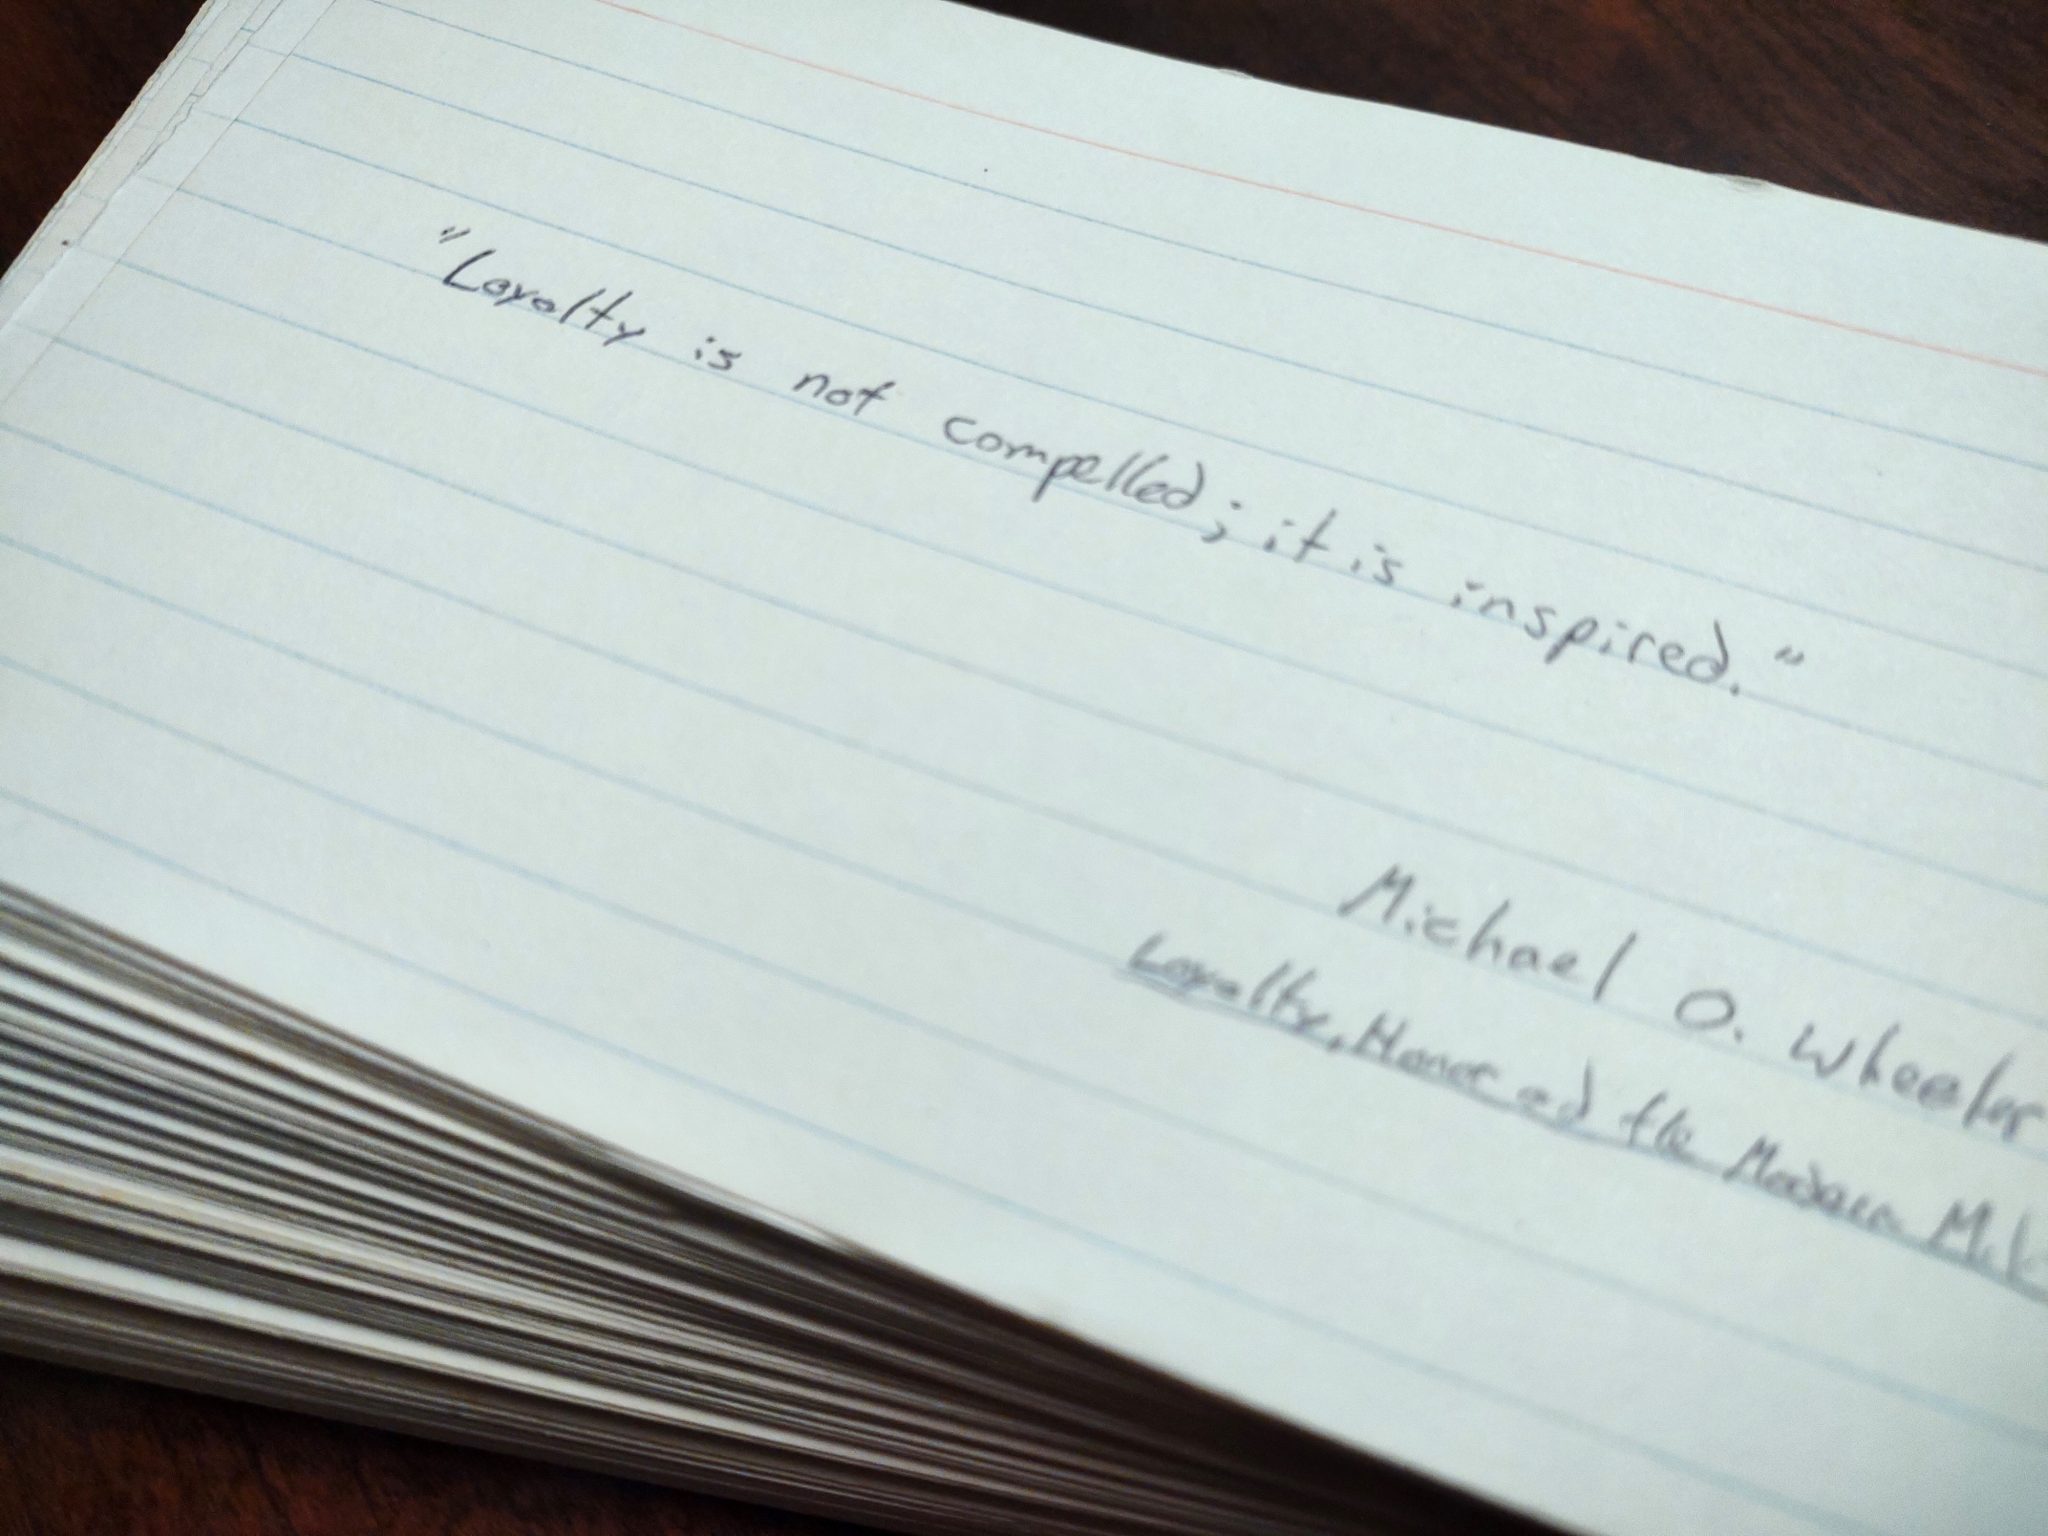 "Loyalty is not compelled; it is inspired."
Michael O. Wheeler
Loyalty, Honor and the Modern Mil